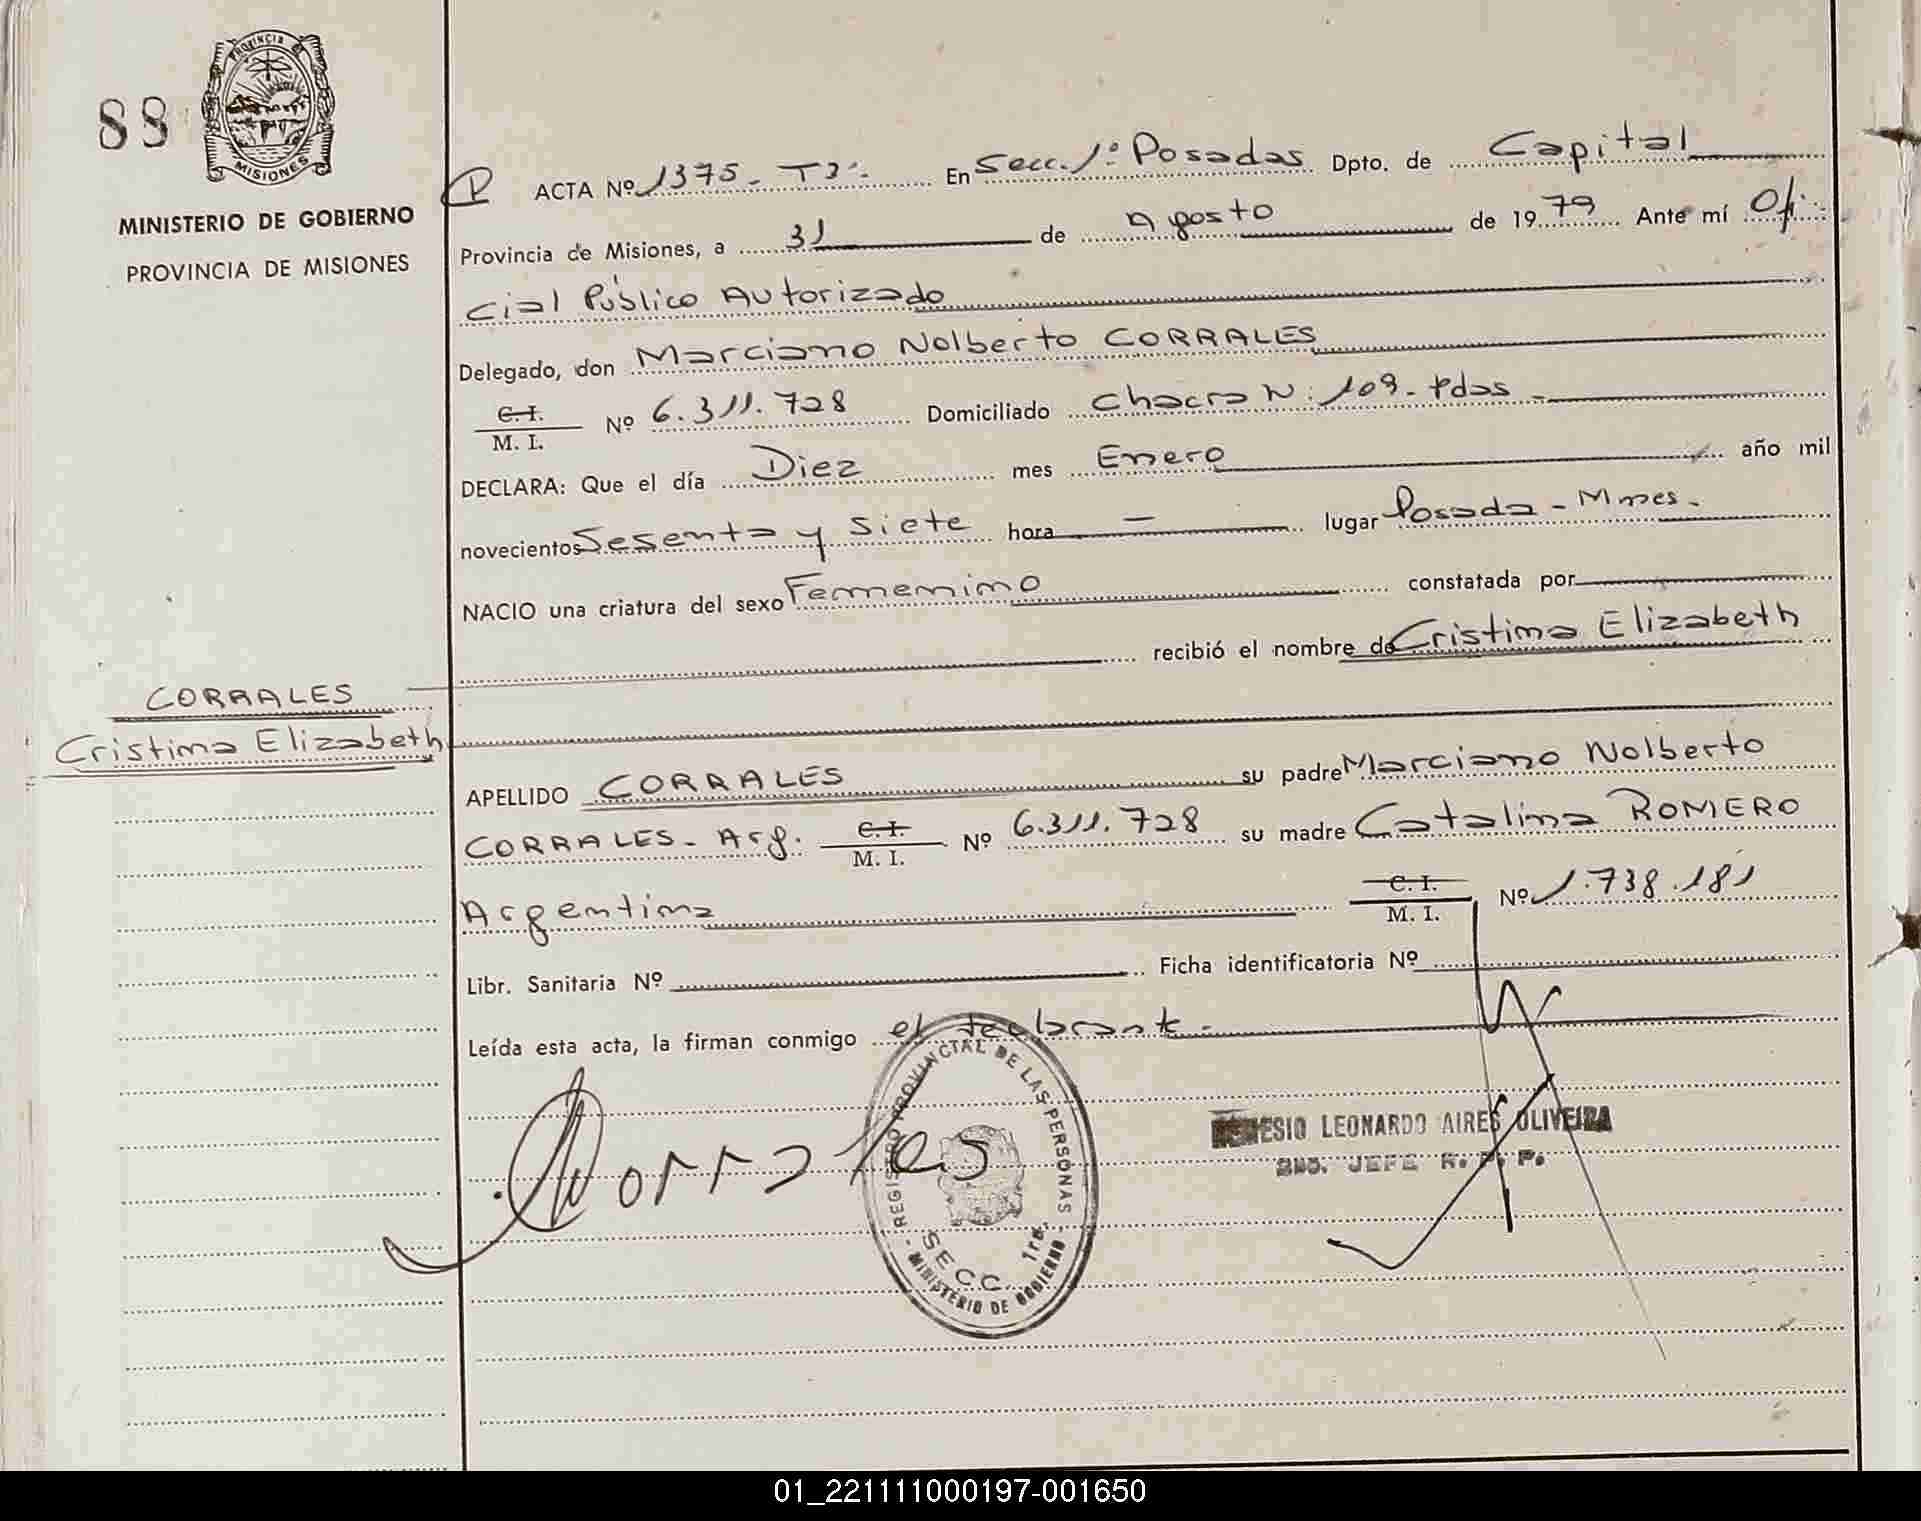 88
PROVINCIA DE
MISIONES
MINISTERIO DE GOBIERNO
PROVINCIA DE MISIONES
ACTA Nº 1375 - T3º. En Secc. 1º Posadas Dpto. de Capital
Provincia de Misiones, a 31 de agosto de 1979 Ante mí Ofi
cial Público Autorizado
Delegado, don Marciano Nolberto CORRALES
C.I. / M. I. Nº 6.311.728 Domiciliado Chacra N: 109 - Pdas -
DECLARA: Que el día Diez mes Enero año mil
novecientos Sesenta y Siete hora — lugar Posada - Mnes.
NACIO una criatura del sexo Femenino constatada por
recibió el nombre de Cristina Elizabeth
CORRALES
Cristina Elizabeth
APELLIDO CORRALES su padre Marciano Nolberto
CORRALES - Arg. C.I. / M. I. Nº 6.311.728 su madre Catalina ROMERO
Argentina C.I. / M. I. Nº 1.738.181
Libr. Sanitaria Nº Ficha identificatoria Nº
Leída esta acta, la firman conmigo el declarante -
Corrales
REGISTRO PROVINCIAL DE LAS PERSONAS
SECC. 1ra.
MINISTERIO DE GOBIERNO
LEONARDO AIRES OLIVEIRA
2DO. JEFE R. P. P.
01_221111000197-001650